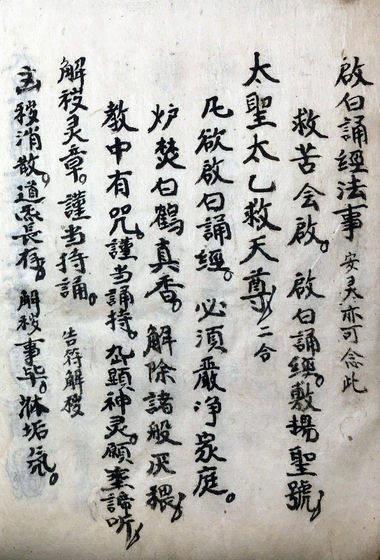 啟白誦經法事 安灵亦可念此
救苦会啟。啟白誦經。敷揚聖號
太聖太乙救天尊 二合
凡欲啟白誦經。必須嚴净家庭。
炉焚白鶴真香。解除諸般厌穢
教中有咒。謹当誦持。 顕神灵。願垂諦听
解秽灵章。謹当持誦。 告符解穢
秽消散。道炁長存。解秽事毕。 垢氛。